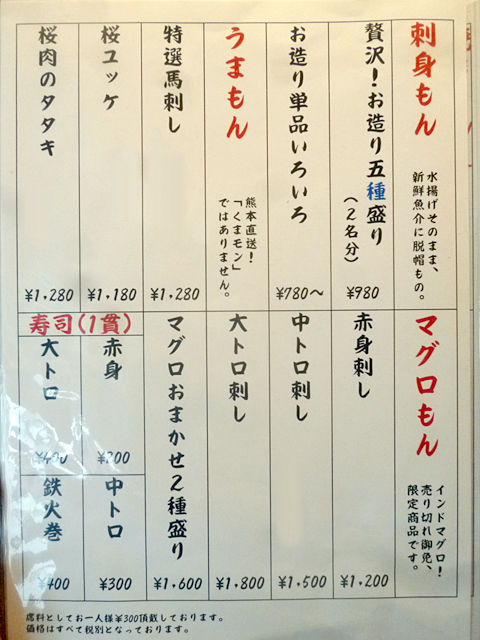 刺身もん
水揚げそのまま、
新鮮魚介に脱帽もの。
贅沢!お造り五種盛り
(2名分)
¥980
お造り単品いろいろ
¥780～
うまもん
熊本直送!
「くまモン」
ではありません。
特選馬刺し
¥1,280
桜ユッケ
¥1,180
桜肉のタタキ
¥1,280
マグロもん
インドマグロ!
売り切れ御免、
限定商品です。
赤身刺し
¥1,200
中トロ刺し
¥1,500
大トロ刺し
¥1,800
マグロおまかせ2種盛り
¥1,600
寿司(1貫)
赤身
¥200
大トロ
¥400
中トロ
¥300
鉄火巻
¥400
席料としてお一人様¥300頂戴しております。
価格はすべて税別となっております。